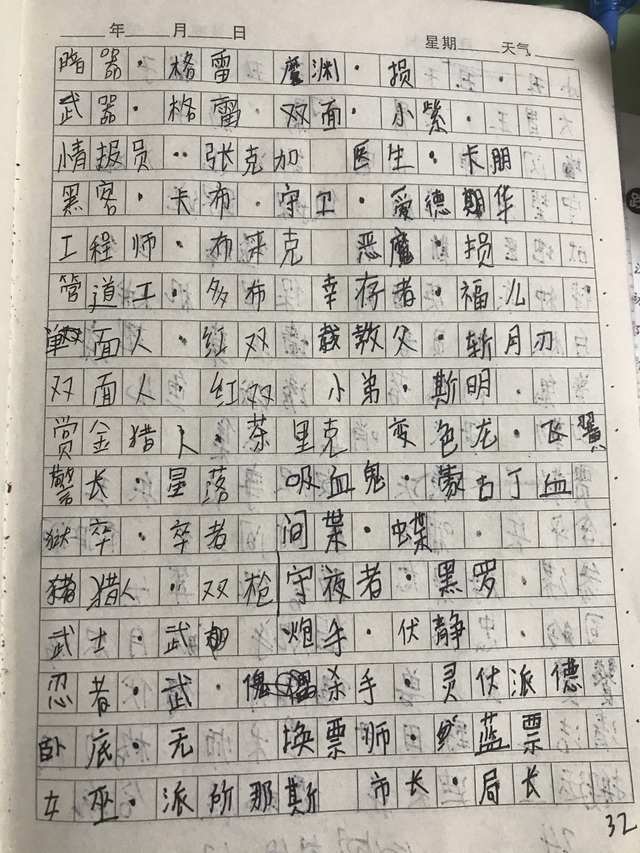 年 月 日 星期 天气
器·格雷 魔渊·损
武器·格雷 双面·小紫
情报员··张克加 医生·卡朋
黑客·卡布·守卫·爱德期华
工程师·布来克 恶魔·损
管道工·多布 幸存者·福儿
面人·红双 教父·斩月刃
双面人·红双 小弟·斯明·
赏金猎人·茶里克 变色龙·飞翼
警长·星落 吸血鬼·蒙古丁血
狱卒·卒者 间谍·蝶
猎人·双枪 守夜者·黑罗
武士·武 炮手·伏静
忍者·武·傀 杀手·灵伏派德
卧底·无 换票师·蓝票
女巫·派所那斯 市长·局长
32